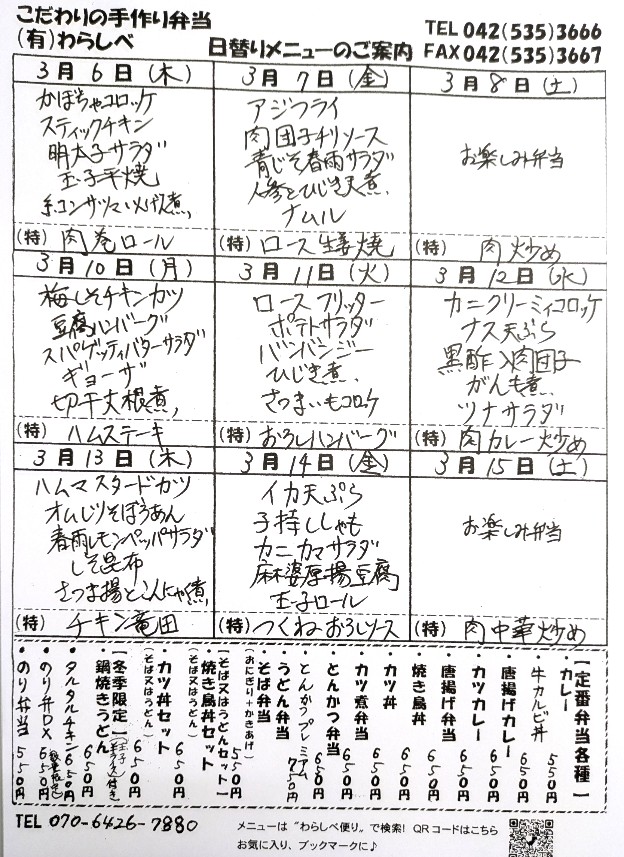 こだわりの手作り弁当
(有)わらしべ
日替りメニューのご案内
TEL 042(535)3666
FAX 042(535)3667
3月6日(木)
かぼちゃコロッケ
スティックチキン
明太子サラダ
玉子平焼
糸コンサツマいも煮
(特) 肉巻ロール
3月7日(金)
アジフライ
肉団子チリソース
青じそ春雨サラダ
人参とひじき天煮
ナムル
(特) ロース生姜焼
3月8日(土)
お楽しみ弁当
(特) 肉炒め
3月10日(月)
梅しそチキンカツ
豆腐ハンバーグ
スパゲッティバターサラダ
ギョーザ
切干大根煮
(特) ハムステーキ
3月11日(火)
ロースフリッター
ポテトサラダ
バンバンジー
ひじき煮
さつまいもコロケ
(特) おろしハンバーグ
3月12日(水)
カニクリーミィコロッケ
ナス天ぷら
黒酢入肉団子
がんも煮
ツナサラダ
(特) 肉カレー炒め
3月13日(木)
ハムマスタードカツ
オムレツそぼろあん
春雨レモンペッパサラダ
しそ昆布
さつま揚とこんにゃく煮
(特) チキン竜田
3月14日(金)
イカ天ぷら
子持ししゃも
カニカマサラダ
麻婆厚揚豆腐
玉子ロール
(特) つくねおろしソース
3月15日(土)
お楽しみ弁当
(特) 肉中華炒め
【定番弁当各種】
・カレー 550円
・牛カルビ丼 650円
・唐揚げカレー 650円
・カツカレー 650円
・唐揚げ弁当 650円
・焼き鳥丼 650円
・カツ丼 650円
・カツ煮弁当 650円
・とんかつ弁当 650円
・とんかつプレミアム 750円
・うどん弁当
・そば弁当
(おにぎり+かきあげ) 550円
【そば又はうどんセット】
・焼き鳥丼セット
(そば又はうどん) 650円
・カツ丼セット
(そば又はうどん) 650円
【冬季限定】
・鍋焼きうどん 650円
・タルタルチキン 650円
・のり弁DX 650円
・のり弁当 550円
TEL 070-6426-7880
メニューは“わらしべ便り”で検索! QRコードはこちら
お気に入り、ブックマークに♪